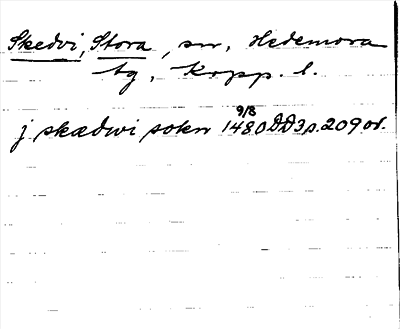 Skedvi, Stora, sn, Hedemora
tg, Kopp. l.
9/8
j skædwi sokn 1480 DD3 s. 209 or.